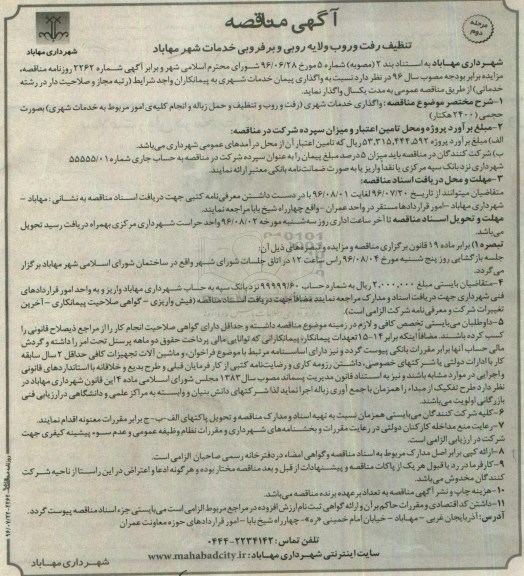 آگهی مناقصه
مرحله دوم
شهرداری مهاباد
تنظیف رفت وروب ولایه روبی و برفروبی خدمات شهر مهاباد
شهرداری مهاباد به استناد بند ۲ (مصوبه) شماره ۵ مورخ ۹۶/۰۶/۲۸ شورای محترم اسلامی شهر و برابر آگهی شماره ۲۲۶۲ روزنامه مناقصه،
مزایده برابر بودجه مصوب سال ۹۶ در نظر دارد نسبت به واگذاری پیمان خدمات شهری به پیمانکاران واجد شرایط (رتبه مجاز و صلاحیت دار در رشته
خدماتی) از طریق مناقصه عمومی به مدت یکسال واگذار نماید.
۱-شرح مختصر موضوع مناقصه: واگذاری خدمات شهری (رفت و روب و تنظیف و حمل زباله و انجام کلیه‌ی امور مربوط به خدمات شهری) بصورت
حجمی (۲۴۰۰ هکتار)
۲-مبلغ برآورد پروژه ومحل تامین اعتبار و میزان سپرده شرکت در مناقصه:
الف) مبلغ برآورد پروژه ۵۳,۳۱۵,۴۴۴,۵۹۲ ریال که تامین اعتبار آن از محل درآمدهای عمومی شهرداری می‌باشد.
ب) شرکت کنندگان در مناقصه باید میزان ۵ درصد مبلغ پیمان را به عنوان سپرده شرکت در مناقصه به حساب جاری شماره ۵۵۵۵۵/۰۱
شهرداری نزد بانک سپه مرکزی یا نقداً واریز یا به صورت ضمانت‌نامه بانکی معتبر ارائه نمایند.
۳-مهلت و محل دریافت اسناد مناقصه:
متقاضیان میتوانند از تاریخ ۹۶/۰۷/۲۰ لغایت ۹۶/۰۸/۰۱ با در دست داشتن معرفی‌نامه کتبی جهت دریافت اسناد مناقصه به نشانی: مهاباد -
شهرداری مهاباد - امور قراردادها مستقر در واحد عمران - واقع چهارراه شیخ بابا مراجعه نمایند.
مهلت و تحویل اسناد مناقصه تا آخر ساعت اداری روز سه شنبه مورخه ۹۶/۰۸/۰۲ واحد حراست شهرداری مرکزی بهمراه دریافت رسید تحویل
می‌باشد.
تبصره ۱) برابر ماده ۱۹ قانون برگزاری مناقصه و مزایده و تبصره‌های ذیل آن:
جلسه بازگشایی روز پنج شنبه مورخ ۹۶/۰۸/۰۴ راس ساعت ۱۲ در اتاق جلسات شورای شهر واقع در ساختمان شورای اسلامی شهر مهاباد برگزار
می‌گردد.
۴-متقاضیان بایستی مبلغ ۲,۰۰۰,۰۰۰ ریال به شماره حساب ۹۹۹۹۹/۶۰ نزد بانک سپه به حساب شهرداری مهاباد واریز و به واحد امور قراردادهای
فنی شهرداری جهت دریافت اسناد و مدارک مراجعه نمایند مضافاً جهت دریافت اسناد مناقصه (فیش واریزی - گواهی صلاحیت پیمانکاری - آخرین
تغییرات شرکت و معرفی نامه شرکت الزامی است).
۵-داوطلبان می‌بایستی تخصص کافی و لازم در زمینه موضوع مناقصه داشته و حداقل دارای گواهی صلاحیت انجام کار را از مراجع ذیصلاح قانونی را
کسب کرده باشند. مضافاً اینکه برابر ۱۴-۱۵ تعهدات پیمانکار، پیمانکارانی که توانایی مالی پرداخت حقوق دو ماهه پرسنل تحت امر را داشته و گردش
مالی حساب آنها برابر مقررات بانکی پیوست گردد و نیز دارای اساسنامه مرتبط با موضوع فراخوان، و ماشین آلات تجهیزات کافی حداقل ۲ سال سابقه
کار با ادارات دولتی یا شرکتهای خصوصی، داشتن رزومه کاری و رضایت‌نامه کتبی از کارفرمایان قبلی و طرح بدیع و خلاقانه با استانداردهای قانونی
و اجرایی در موارد مشابه باشند و نیز به استناد قانون مدیریت پسماند مصوب سال ۱۳۸۳ مجلس شورای اسلامی ماده ۴ این قانون شهرداری مهاباد در
نظر دارد طرح تفکیک از مبداء را همزمان با جمع آوری زباله اجرا نماید لذا شرکتهای دانش بنیان و وابسته به مراکز علمی و دانشگاهی در ارزیابی فنی
بازرگانی اولویت می‌باشند.
۶-کلیه شرکت کنندگان می‌بایستی همزمان نسبت به تهیه اسناد و مدارک مناقصه و تحویل پاکتهای الف-ب-ج برابر مقررات معنونه اقدام نمایند.
۷-رعایت منع مداخله کارکنان دولتی در رعایت مقررات و بخشنامه‌های شهرداری و مقررات نظام وظیفه عمومی و عدم سوء پیشینه کیفری جهت
شرکت در ارزیابی الزامی است.
۸-ارائه کپی برابر اصل مدارک مربوط به اسناد مناقصه و گواهی امضاء در دفترخانه رسمی صاحبان الزامی است.
۹-کارفرما در رد یا قبول هر یک از پاکات مناقصه و پیشنهادات از قبل و بعد مناقصه مختار بوده و هرگونه ادعا و اعتراض در این راستا از ناحیه شرکت
کنندگان مخدوش می‌باشد.
۱۰-هزینه چاپ و نشر آگهی مناقصه به تعداد بر عهده برنده مناقصه می‌باشد.
۱۱-داشتن کد اقتصادی و مقررات حاکم بر آن و ارائه گواهی ثبت نام ارزش افزوده در مراجع مربوط الزامی است می‌بایستی جزء اسناد مناقصه پیوست گردد.
آدرس: آذربایجان غربی - مهاباد - خیابان امام خمینی «ره» - چهارراه شیخ بابا - امور قراردادهای حوزه معاونت عمران
تلفن تماس: ۲۲۳۴۱۴۲-۰۴۴۴
سایت اینترنتی شهرداری مهاباد: www.mahabadcity.ir
شهرداری مهاباد